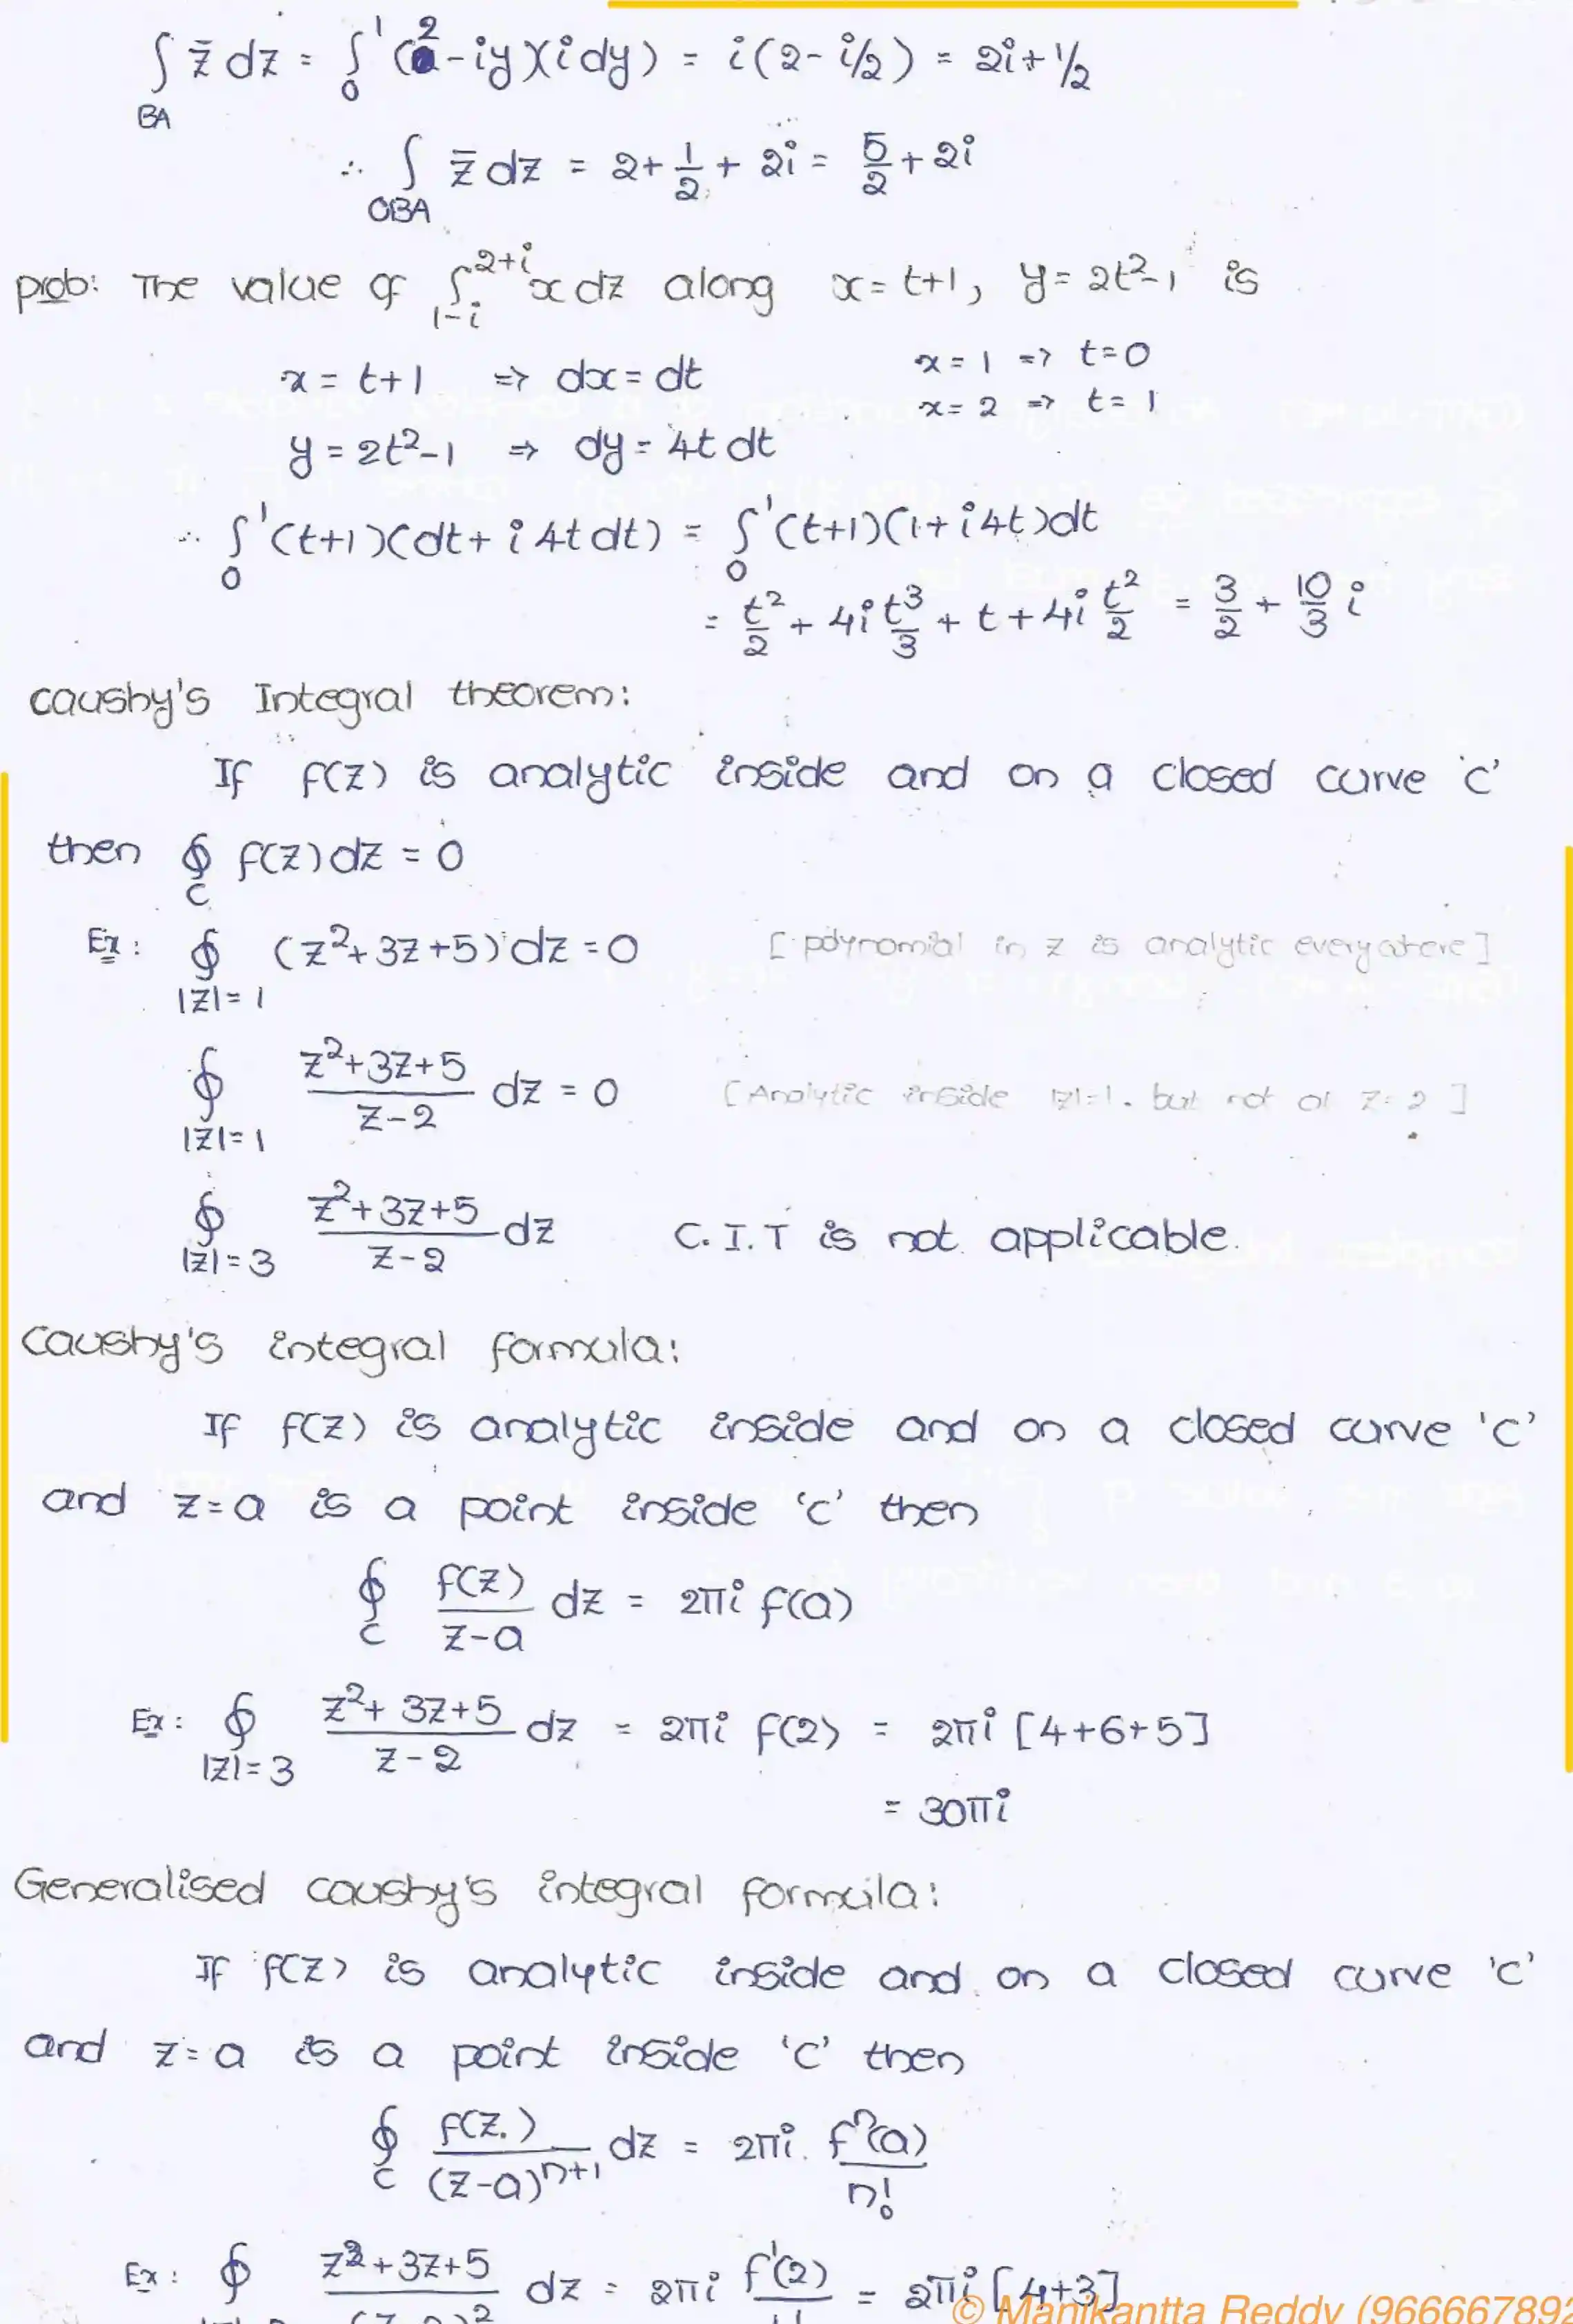 ∫_BA z̄ dz = ∫_0^1 (2-iy)(i dy) = i(2 - i/2) = 2i + 1/2
∴ ∫_OBA z̄ dz = 2 + 1/2 + 2i = 5/2 + 2i
prob: The value of ∫_{1-i}^{2+i} x dz along x = t+1, y = 2t²-1 is
x = t+1 ⇒ dx = dt x = 1 ⇒ t = 0
x = 2 ⇒ t = 1
y = 2t²-1 ⇒ dy = 4t dt
∴ ∫_0^1 (t+1)(dt + i 4t dt) = ∫_0^1 (t+1)(1 + i4t)dt
= t²/2 + 4i t³/3 + t + 4i t²/2 = 3/2 + 10/3 i
Caushy's Integral theorem:
If f(z) is analytic inside and on a closed curve 'c'
then ∮_C f(z) dz = 0
Ex: ∮_{|z|=1} (z²+3z+5) dz = 0 [polynomial in z is analytic everywhere]
∮_{|z|=1} (z²+3z+5)/(z-2) dz = 0 [Analytic inside |z|=1. but not at z=2]
∮_{|z|=3} (z²+3z+5)/(z-2) dz C.I.T is not applicable.
Caushy's integral formula:
If f(z) is analytic inside and on a closed curve 'c'
and z=a is a point inside 'c' then
∮_C f(z)/(z-a) dz = 2πi f(a)
Ex: ∮_{|z|=3} (z²+3z+5)/(z-2) dz = 2πi f(2) = 2πi [4+6+5]
= 30πi
Generalised caushy's integral formula:
If f(z) is analytic inside and on a closed curve 'c'
and z=a is a point inside 'c' then
∮_C f(z)/(z-a)^{n+1} dz = 2πi. fⁿ(a)/n!
Ex: ∮ z²+3z+5 dz = 2πi f'(2) = 2πi [4+3]
© Manikantta Reddy (966667892